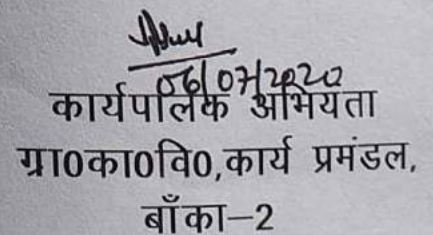 06/07/2020
कार्यपालक अभियंता
ग्रा0का0वि0,कार्य प्रमंडल,
बाँका-2